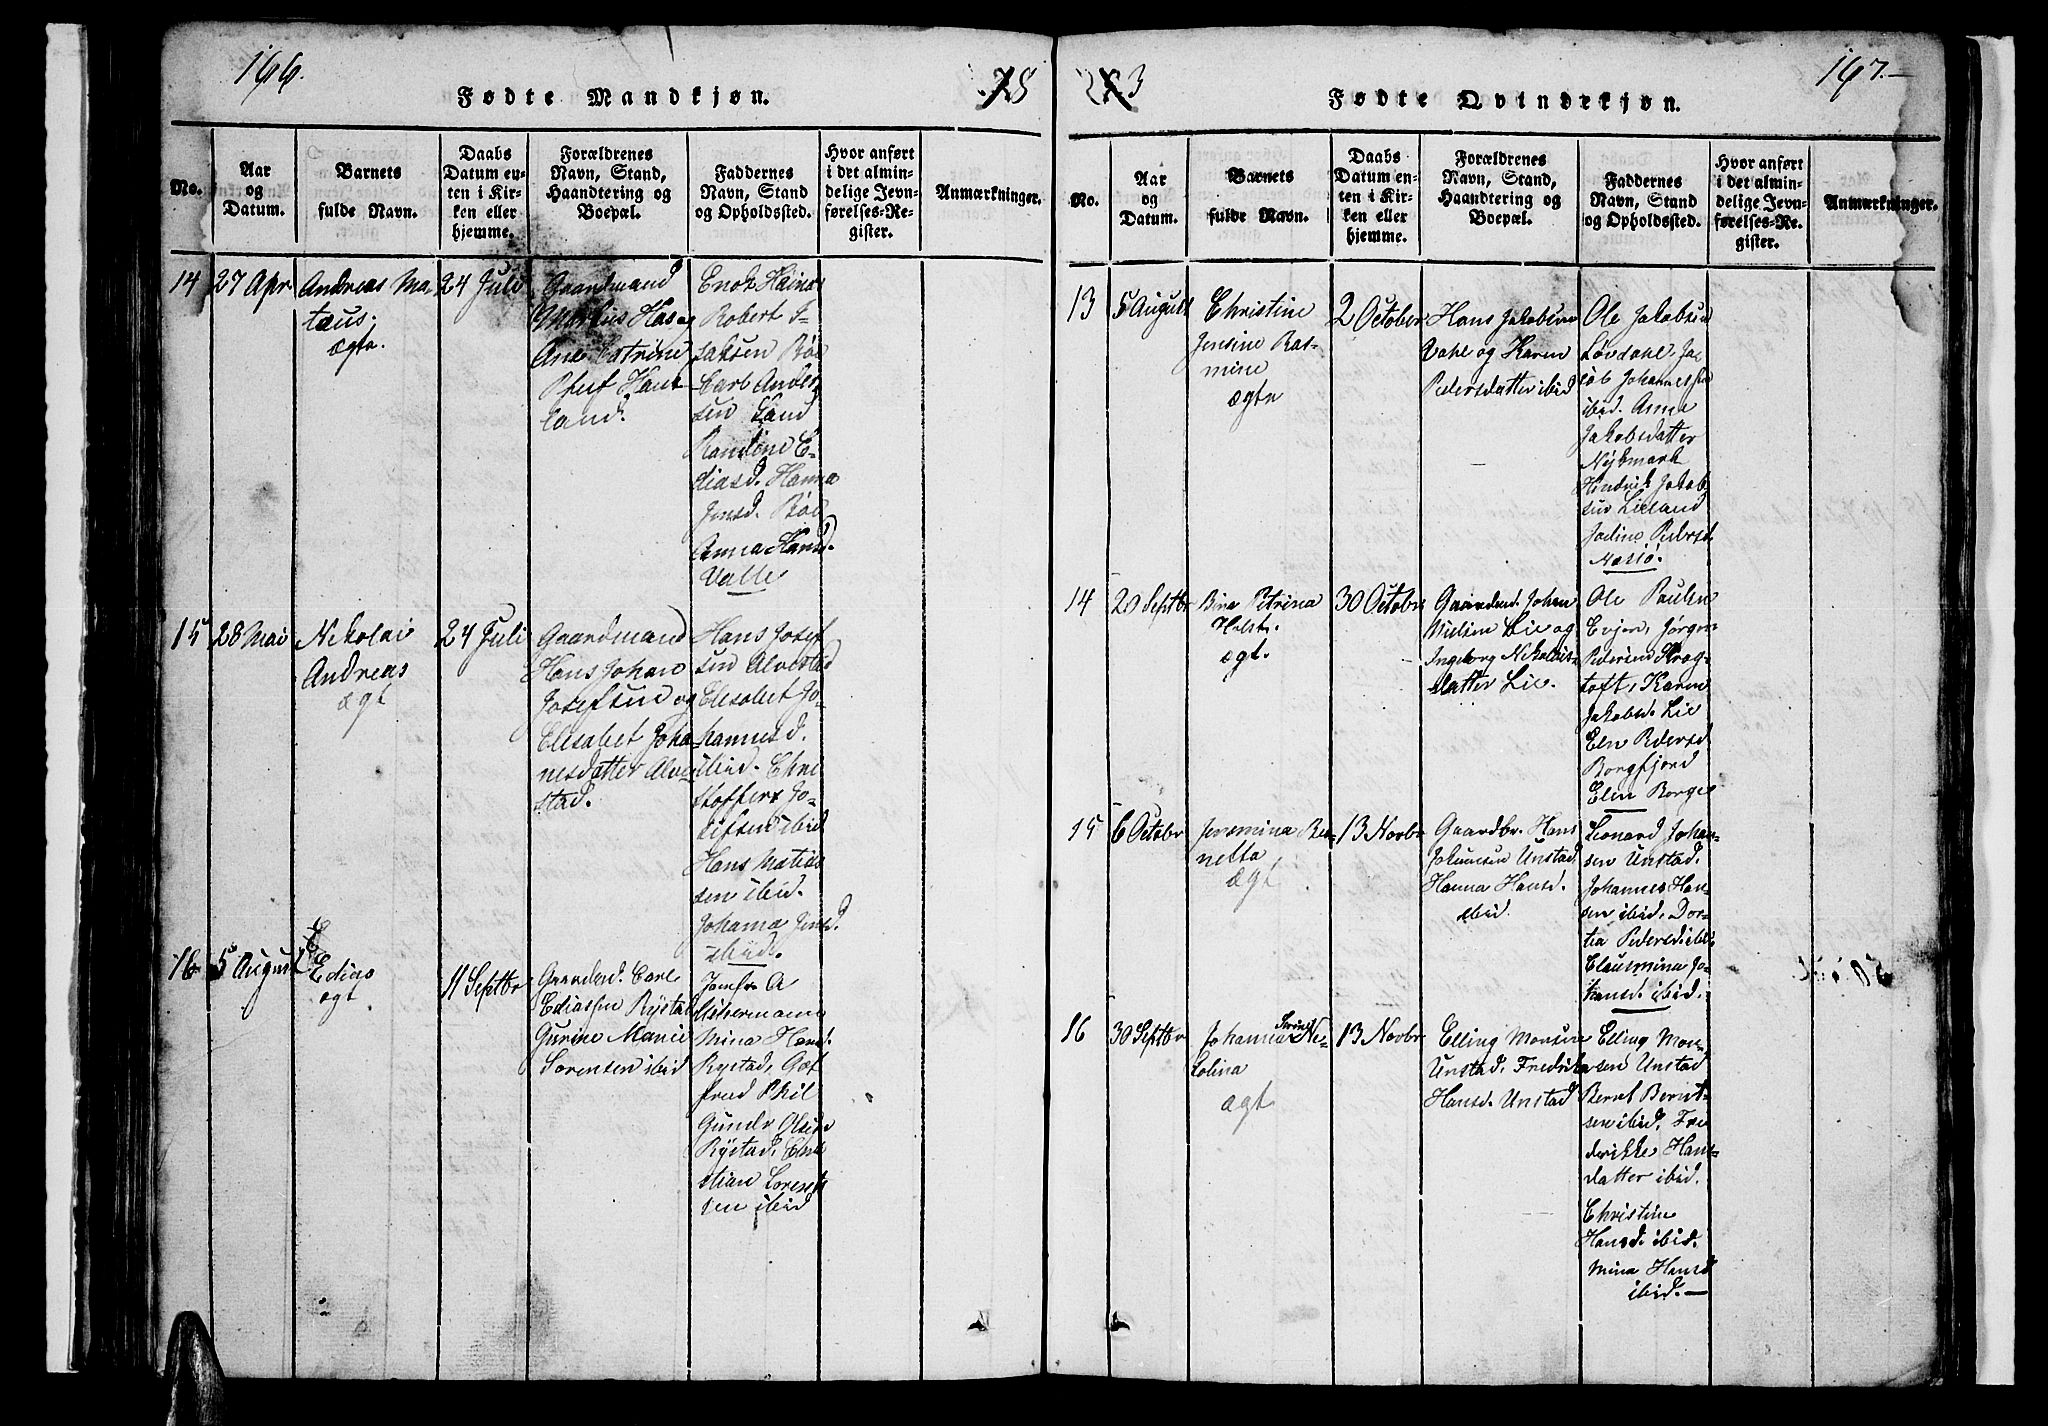 166.
28
Fødte Mandkjøn.
No.
Aar
og
Datum.
Barnets
fulde Navn.
Daabs
Datum en-
ten i Kir-
ken eller
hjemme.
Forældrenes
Navn, Stand,
Haandtering og
Boepæl.
Faddernes
Navn, Stand
og Opholdssted.
Hvor anført
i det almin-
delige Jevn-
førelses-Re-
gister.
Anmærkninger.
14
27 Apr
Andreas Ma-
taus.
ægte.
24 Juli
Gaardmand
Markus Has og
Ane Catrine
Land.
Enok
Robert I-
saksen Böe
Carl Ander-
sen Sand
Randine E-
diasd. Hanna
Jensd. Böe
Anna Hansd.
Valle
15
28 Mai
Nikolai
Andreas
ægt
24 Juli
Gaardmand
Hans Johan
Josefsen og
Elisabet Joha
nesdatter Alve-
stad.
Hans Josef
sen Alvestad
Elisabet Jo-
hannesd.
ibid. Chri
stoffer Jo-
sefsen ibid
Hans Matias
sen ibid.
Johanna Jensd.
ibid.
16
5 August
Edias
ægt
11 Septbr
Gaardmd. Carl
Ediassen Rystad
Gurine Marie
Sorensen ibid
Jomfr. A
Mina Hansd.
Rystad, Got
fred
Gunder Olsen
Rystad, Chri
stian Sorens
sen ibid
3
167.-
Fødte Qvindekjøn.
No.
Aar
og
Datum.
Barnets
fulde Navn.
Daabs
Datum en-
ten i Kir-
ken eller
hjemme.
Forældrenes
Navn, Stand,
Haandtering og
Boepæl.
Faddernes
Navn, Stand
og Opholdssted.
Hvor anført
i det almin-
delige Jevn-
førelses-Re-
gister.
Anmærkninger.
13
5 August
Christine
Jensine Ras-
mine
ægte
2 October
Hans Jakobsen
Vahl og Karen
Pedersdatter ibid
Ole Jakobsen
Lövdahl, Ja
cob Johannessen
ibid. Anna
Jakobsdatter
Nykmark
Hendrik Jakob
sen Lieland
Jodine Pedersd.
14
20 Septbr
Bina Petrina
Holst.
ægt.
30 Octobr
Gaardmd. Johan
Nielsen Lie og
Ingeborg Nikolais-
datter Lie.
Ole Paulsen
Evjen, Jörgen
Pedersen Krog-
toft, Karen
Jakobsd. Lie
Elen Pedersd.
Borgfjord
Elen Borge
15
6 Octobr
Jeremina Be-
netta
ægt
13 Novbr
Gaardbr. Hans
Johansen Unstad
Hanna Hansd.
ibid.
Leonard Johan-
sen Unstad.
Johannes Han-
sen ibid. Dor-
tea Pedersd ibid
Clausmina Jo-
hansd. ibid.
16
30 Septbr
Johanna Ne-
colina
ægt
13 Novbr
Elling Monsen
Unstad, Fredrikke
Hansd. Unstad
Elling Mon-
sen Unstad
Bernt Bernt-
sen ibid. Fre
derikke Hans-
datter ibid.
Christine
Hansd. ibid.
Mina Hansd
ibid.-